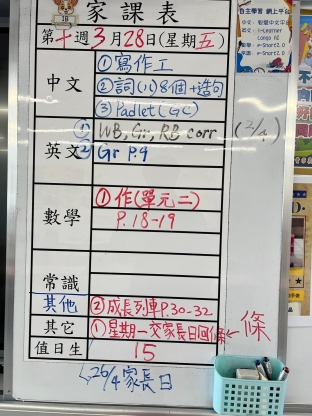 家課表
第十週3月28日(星期五)
中文
①寫作工
②詞(八)8個+造句
③Padlet(GC)
英文
① WB, Gr, RB corr (2/4)
② Gr P.9
數學
①作(單元二)
P.18-19
常識
其他
②成長列車P.30-32
其它
①星期一交家長日回條←條
值日生
15
↳26/4家長日
1B
自主學習 網上平台
中文:智愛中文平台
英文:i-Learner
Longman AE
數學:e-Smart2.0
常識:e-Smart2.0